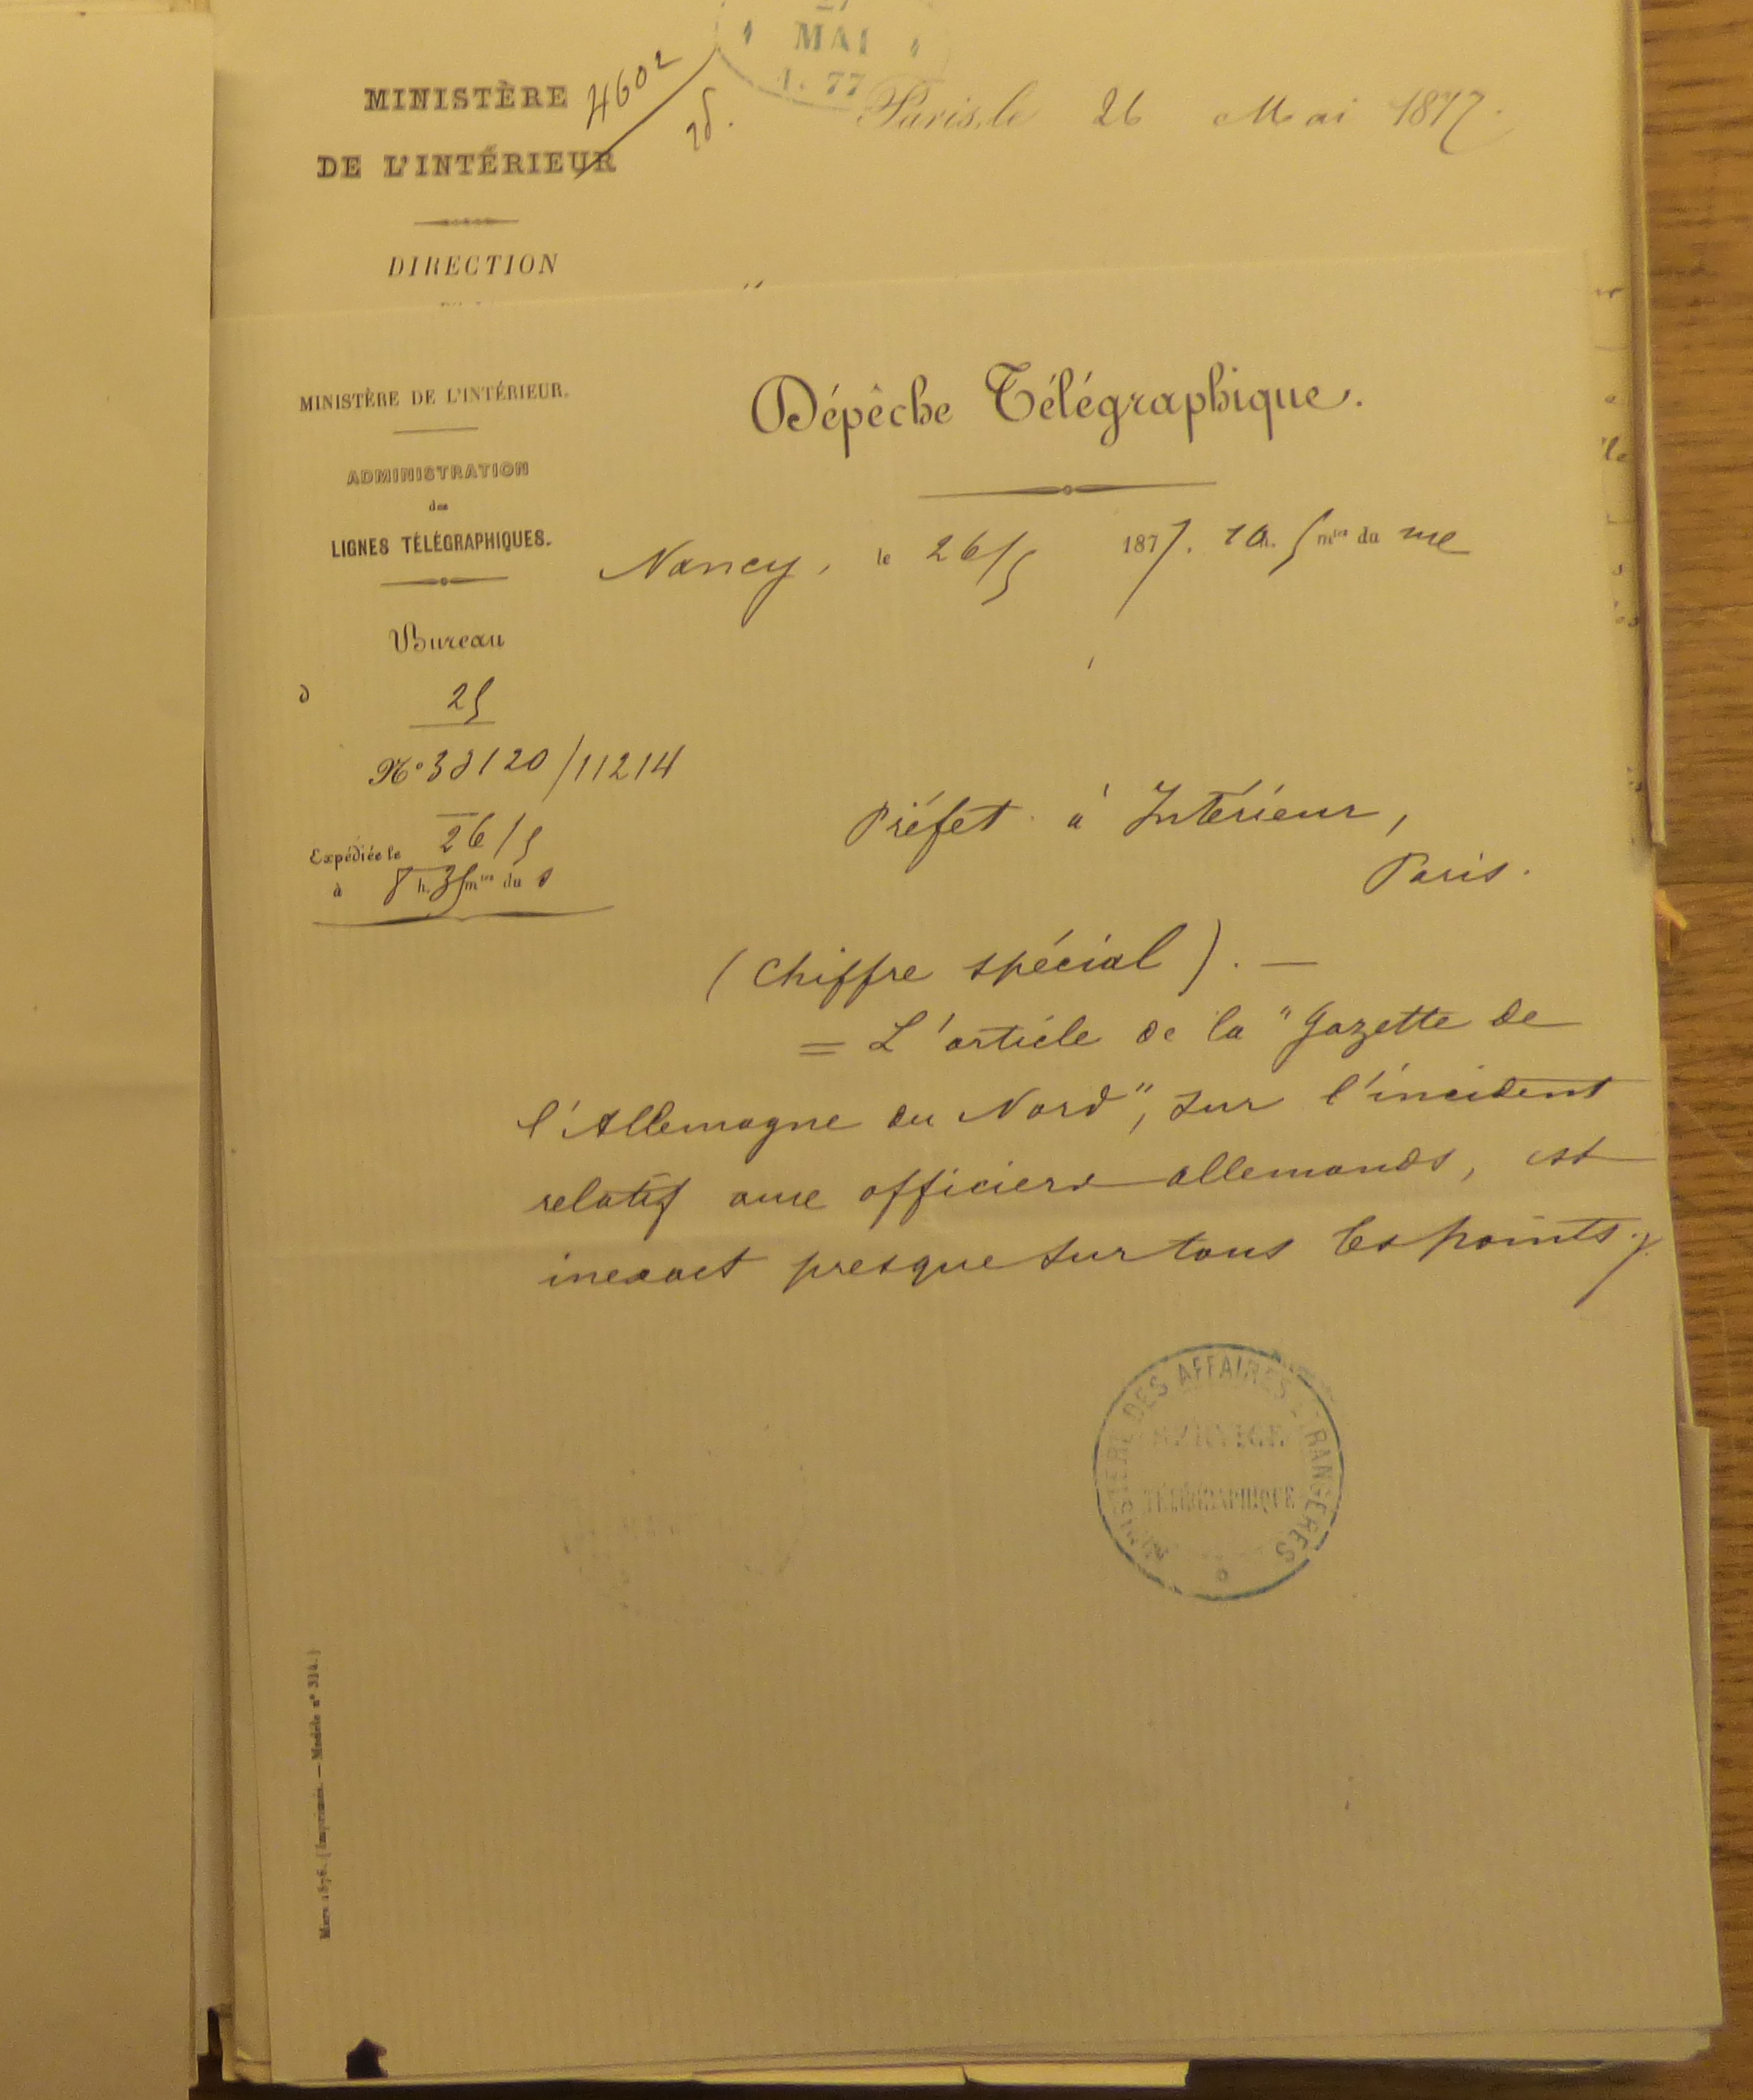 MAI
77
MINISTÈRE
4602
DE L'INTÉRIEUR
Paris, le 26 Mai 1877.
DIRECTION
MINISTÈRE DE L'INTÉRIEUR.
ADMINISTRATION
des
LIGNES TÉLÉGRAPHIQUES.
Bureau
25
N° 33120/11214
Expédiée le 26/5
à 8 h. 35 mtes du s
Dépêche Télégraphique.
Nancy, le 26/5 1877. 10 h. 5 mtes du
Préfet à Intérieur,
Paris.
(Chiffre spécial). —
= L'article de la "Gazette de
l'Allemagne du Nord", sur l'incident
relatif aux officiers allemands, est
inexact presque sur tous les points ./.
MINISTÈRE DES AFFAIRES ÉTRANGÈRES
SERVICE
TÉLÉGRAPHIQUE
Mars 1876. (Imprimés. — Modèle n° 314.)